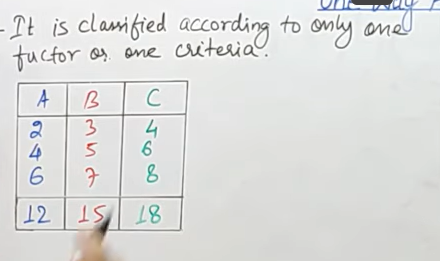 - It is classified according to only one
factor or one criteria.
A B C
2 3 4
4 5 6
6 7 8
12 15 18